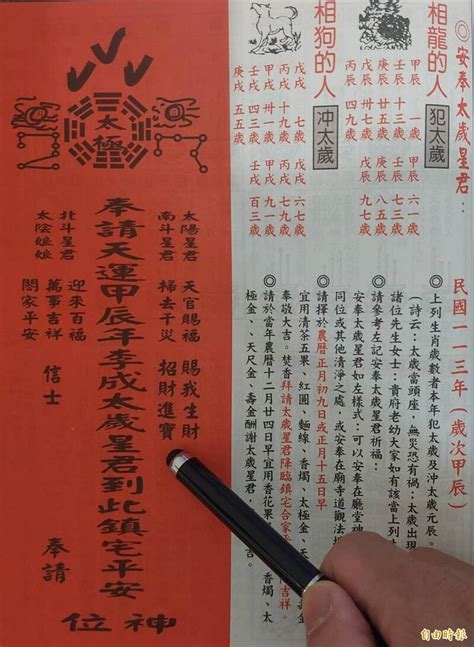 ◎安奉太歲星君：
相龍的人
犯太歲
甲辰 一歲 甲辰 六一歲
壬辰 十三歲 壬辰 七三歲
庚辰 廿五歲 庚辰 八五歲
戊辰 卅七歲 戊辰 九七歲
丙辰 四九歲
相狗的人
沖太歲
戊戌 七歲 戊戌 六七歲
丙戌 十九歲 丙戌 七九歲
甲戌 卅一歲 甲戌 九一歲
壬戌 四三歲 壬戌 百三歲
庚戌 五五歲
民國一一三年（歲次甲辰）
◎上列生肖歲數者本年犯太歲及沖太歲元辰。
（詩云：太歲當頭座，無災恐有禍；太歲出現
諸位先生女士：貴府老幼大家如有該當上列
請參考左記安奉太歲星君祈福：
安奉太歲星君如左樣式：可以安奉在廳堂神
同位或其他清淨之處，或安奉在廟寺道觀法
◎請擇於農曆正月初九日或正月十五日早
宜用清茶五果、紅圓、麵線、香燭、太極金、天
奉敬大吉。焚香拜請太歲星君降臨鎮宅合家平 吉祥。
◎請於當年農曆十二月廿四日早宜用香花果 香燭、太
極金、天尺金、壽金酬謝太歲星君， 吉。
太極
太陽星君
南斗星君
天官賜福 賜我生財
掃去千災 招財進寶
奉請天運甲辰年李成太歲星君到此鎮宅平安
北斗星君
太陰娘娘
迎來百福
萬事吉祥
閤家平安
信士
奉請
神位
自由時報